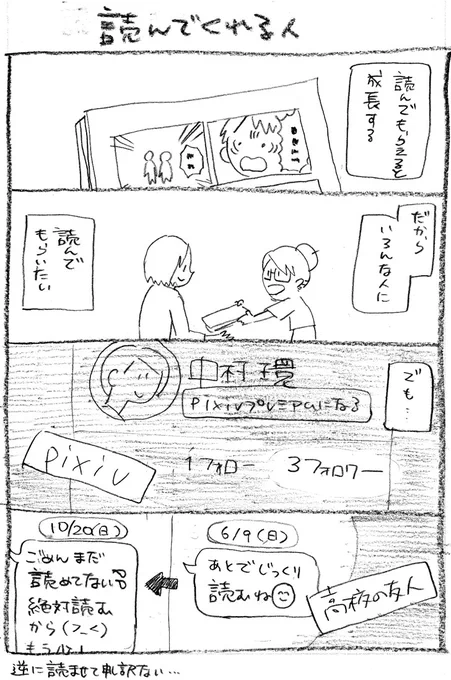 読んでくれる人
読んでもらえると
成長する
だから
いろんな人に
読んで
もらいたい
でも…
中村環
pixivプレミアムになる
1フォロー
3フォロワー
pixiv
高校の友人
6/9(日)
あとでじっくり
読むね
10/20(日)
ごめんまだ
読めてない
絶対読む
から(>_<)
逆に読ませて申訳ない…